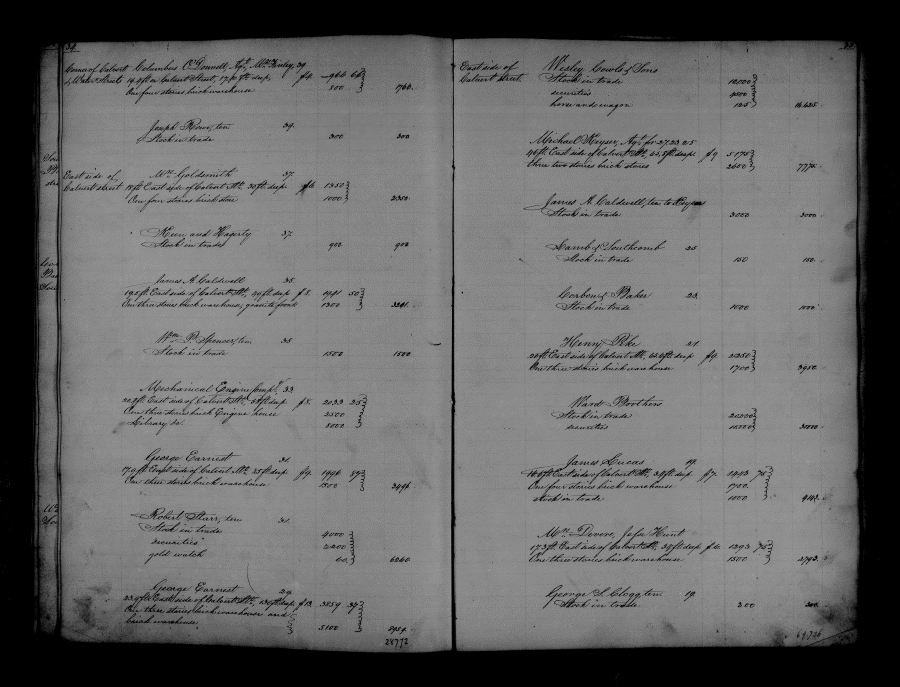 34
Corner of Calvert Columbus O'Donnell, Agt. McKinley 39
& Water Streets 19.4 ft on Calvert Street, deep, 966 66
One four stories brick warehouse 800 1766.
Joseph Rowe, ten 39.
Stock in trade 300 300
East side of Goldsmith 37.
Calvert street 18 ft East side of Calvert St. 30 ft deep 1350
One four stories brick store 1000 2350.
Keen and Hagerty 37.
Stock in trade 902 902
James A. Caldwell 35.
19.5 ft East side of Calvert St, 29 ft deep f 8. 1941 50
One three stories brick warehouse, granite front 1300 3241.
Wm. P. Spencer, ten 35
Stock in trade 1500 1500
Mechanical Engine Compy. 33
20.8 ft East side of Calvert St, deep f 8. 2033 25
One three stories brick Engine house 2500
Library &c. 5000
George Earnest 31.
17.9 ft East side of Calvert St. 25 ft deep f 9. 1996 89
One three stories brick warehouse 1500 3496.
Robert Starr, ten 31.
Stock in trade 4000
securities 2200
gold watch 60 6260.
George Earnest 29
23.9 ft East side of Calvert St, deep f 12. 3859 37
One three stories brick warehouse and
back warehouse 5100 8959.
28772
East side of Wesley Cowls & Sons
Calvert street Stock in trade 12000
securities 4500
horse and wagon 125 16.625.
Michael Keyser, Agt. for 27 23 25
46 ft East side of Calvert St. deep f 9 5175
three two stories brick stores 2600 7775.
James A. Caldwell, ten to Keyser
Stock in trade 3000 3000.
Lamb & Southcomb 25
Stock in trade 150 150.
Corbon & Baker 23.
Stock in trade 1000 1000.
Henry Pike 21.
20 ft East side of Calvert St. deep f 9. 2250
One three stories brick warehouse 1700 3950.
Ward Brothers
Stock in trade 20000
securities 31000
James Lucas 19.
East side of Calvert St. deep f 7. 75
One four stories brick warehouse 1700.
stock in trade 1000
Mrs. Devere, Jefs Hunt
17.3 ft East side of Calvert St. 30 ft deep 1293 75
One three stories brick warehouse 1500 2793.
George L. Clogg ten 19.
Stock in trade 300 300.
68,726